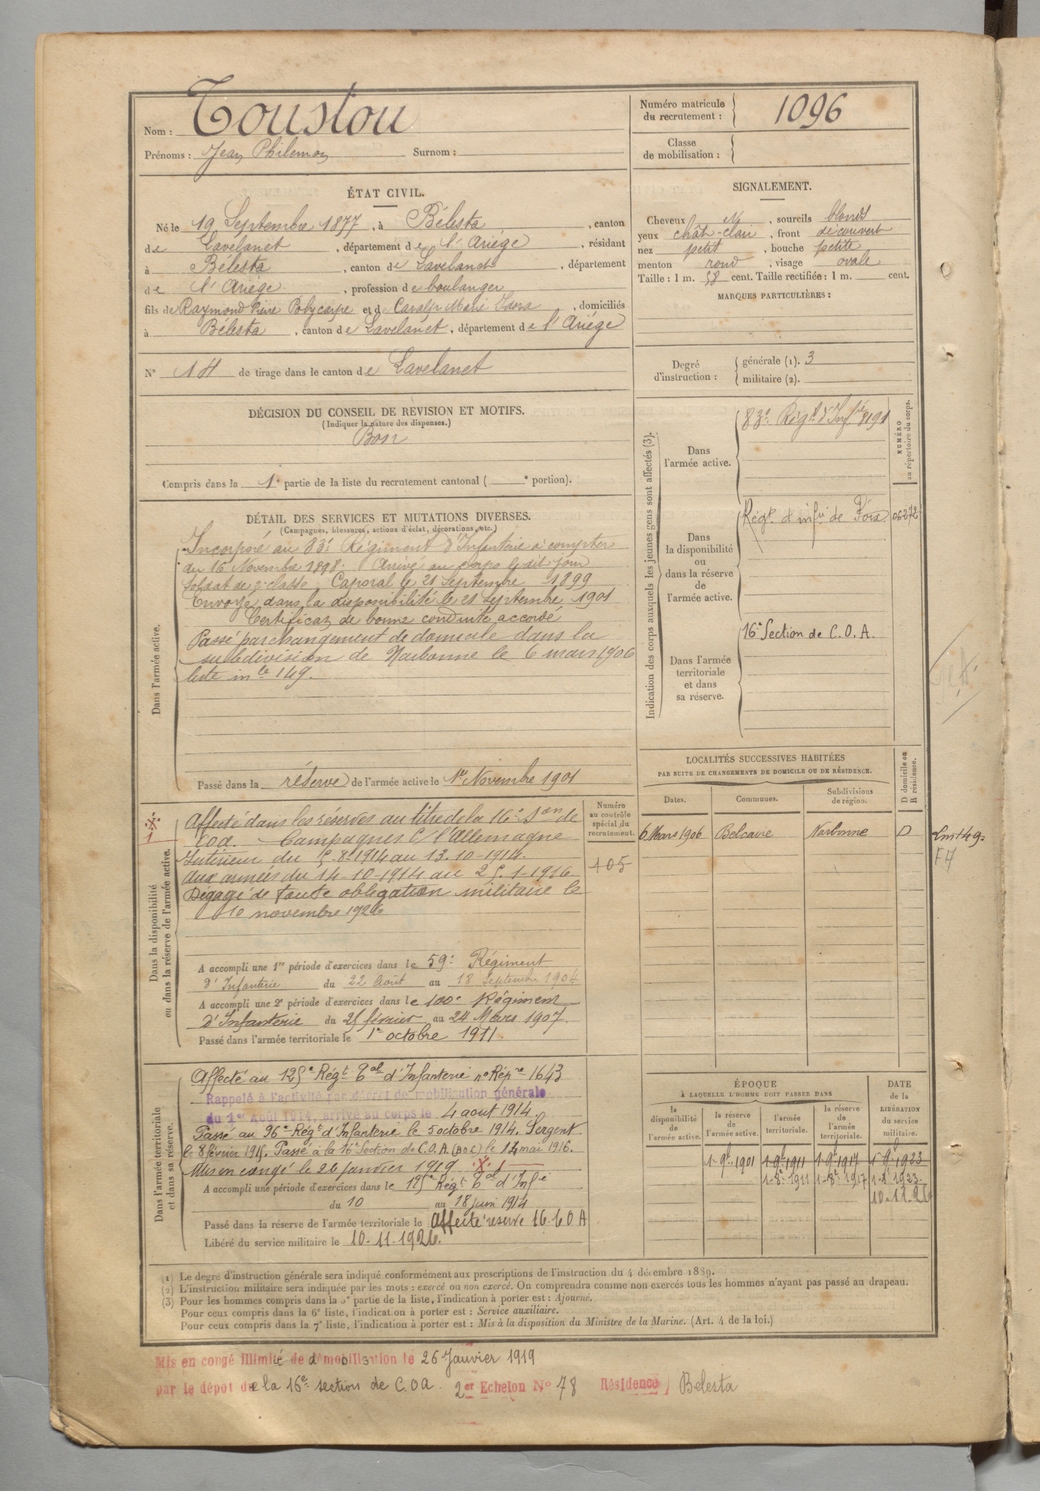 Nom : Toustou
Prénoms : Jean Philemon Surnom :
Numéro matricule du recrutement : 1096
Classe de mobilisation :
ÉTAT CIVIL.
Né le 19 Septembre 1877, à Bélesta, canton
de Lavelanet, département de l'Ariège, résidant
à Bélesta, canton de Lavelanet, département
de l'Ariège, profession de boulanger
fils de Raymond Polycarpe et de Marie, domiciliés
à Bélesta, canton de Lavelanet, département de l'Ariège
N° 14 de tirage dans le canton de Lavelanet
SIGNALEMENT.
Cheveux , sourcils blonds
yeux chât-clair, front découvert
nez petit, bouche petite
menton rond, visage ovale
Taille : 1 m. 58 cent. Taille rectifiée : 1 m. cent.
MARQUES PARTICULIÈRES :
Degré d'instruction : générale (1). 3
militaire (2).
DÉCISION DU CONSEIL DE RÉVISION ET MOTIFS.
(Indiquer la nature des dispenses.)
Bon
Compris dans la 1e partie de la liste du recrutement cantonal ( e portion).
DÉTAIL DES SERVICES ET MUTATIONS DIVERSES.
(Campagnes, blessures, actions d'éclat, décorations, etc.)
Dans l'armée active.
Incorporé au 83e Régiment d'Infanterie à compter
du 16 Novembre 1898. Arrivé au corps le dit jour
soldat de 2e classe. Caporal le 21 Septembre 1899
Envoyé dans la disponibilité le 21 septembre 1901
Certificat de bonne conduite accordé
Passé par changement de domicile dans la
subdivision de Narbonne le 6 mars 1906
liste mle 149.
Passé dans la réserve de l'armée active le 1er Novembre 1901
Indication des corps auxquels les jeunes gens sont affectés (3).
NUMÉRO au répertoire du corps.
Dans l'armée active.
83e Régt d'Infie 8191
Dans la disponibilité ou dans la réserve de l'armée active.
Régt d'infie de Foix 06272
Dans l'armée territoriale et dans sa réserve.
16e Section de C.O.A.
LOCALITÉS SUCCESSIVES HABITÉES
PAR SUITE DE CHANGEMENTS DE DOMICILE OU DE RÉSIDENCE.
Dates. Communes. Subdivisions de région. D domicile ou R résidence.
6 Mars 1906 Belcaire Narbonne D
Lm 149.
Dans la disponibilité ou dans la réserve de l'armée active.
Numéro au contrôle spécial du recrutement.
405
Affecté dans les réserves au titre de la 16e Son de
Coa. Campagnes C/ l'Allemagne
Intérieur du 5-8-1914 au 13-10-1914.
aux armées du 14-10-1914 au 25-1-1916
Dégagé de toute obligation militaire le
10 novembre 1926
A accompli une 1re période d'exercices dans le 59e Régiment
d'Infanterie du 22 Août au 18 Septembre 1904
A accompli une 2e période d'exercices dans le 100e Régiment
d'Infanterie du 25 février au 24 Mars 1907.
Passé dans l'armée territoriale le 1er octobre 1911.
Dans l'armée territoriale et dans sa réserve.
Affecté au 125e Régt tal d'Infanterie n° Répre 1643
Rappelé à l'activité par décret de mobilisation générale
du 1er Août 1914, arrivé au corps le 4 aout 1914
Passé au 96e Régt d'Infanterie le 5 octobre 1914. Sergent
le 8 février 1915. Passé à la 16e Section de C.O.A. le 14 mai 1916.
Mis en congé le 26 janvier 1919
A accompli une période d'exercices dans le 125e Régt tal d'Infie
du 10 au 18 juin 1914
Passé dans la réserve de l'armée territoriale le Affecté réserve 16-C.O.A
Libéré du service militaire le 10-11-1926.
ÉPOQUE
À LAQUELLE L'HOMME DOIT PASSER DANS
la disponibilité de l'armée active. la réserve de l'armée active. l'armée territoriale. la réserve de l'armée territoriale.
DATE de la LIBÉRATION du service militaire.
1-9-1901 1-9-1911 1-9-1917 1-9-1923
1-8-1911 1-8-1917 1-8-1923
10-11-26
(1) Le degré d'instruction générale sera indiqué conformément aux prescriptions de l'instruction du 4 décembre 1889.
(2) L'instruction militaire sera indiquée par les mots : exercé ou non exercé. On comprendra comme non exercés tous les hommes n'ayant pas passé au drapeau.
(3) Pour les hommes compris dans la 5e partie de la liste, l'indication à porter est : Ajourné.
Pour ceux compris dans la 6e liste, l'indication à porter est : Service auxiliaire.
Pour ceux compris dans la 7e liste, l'indication à porter est : Mis à la disposition du Ministre de la Marine. (Art. 4 de la loi.)
Mis en congé illimité de démobilisation le 26 Janvier 1919
par le dépôt de la 16e section de C.O.A. 2er Echelon N° 78 Résidence Bélesta